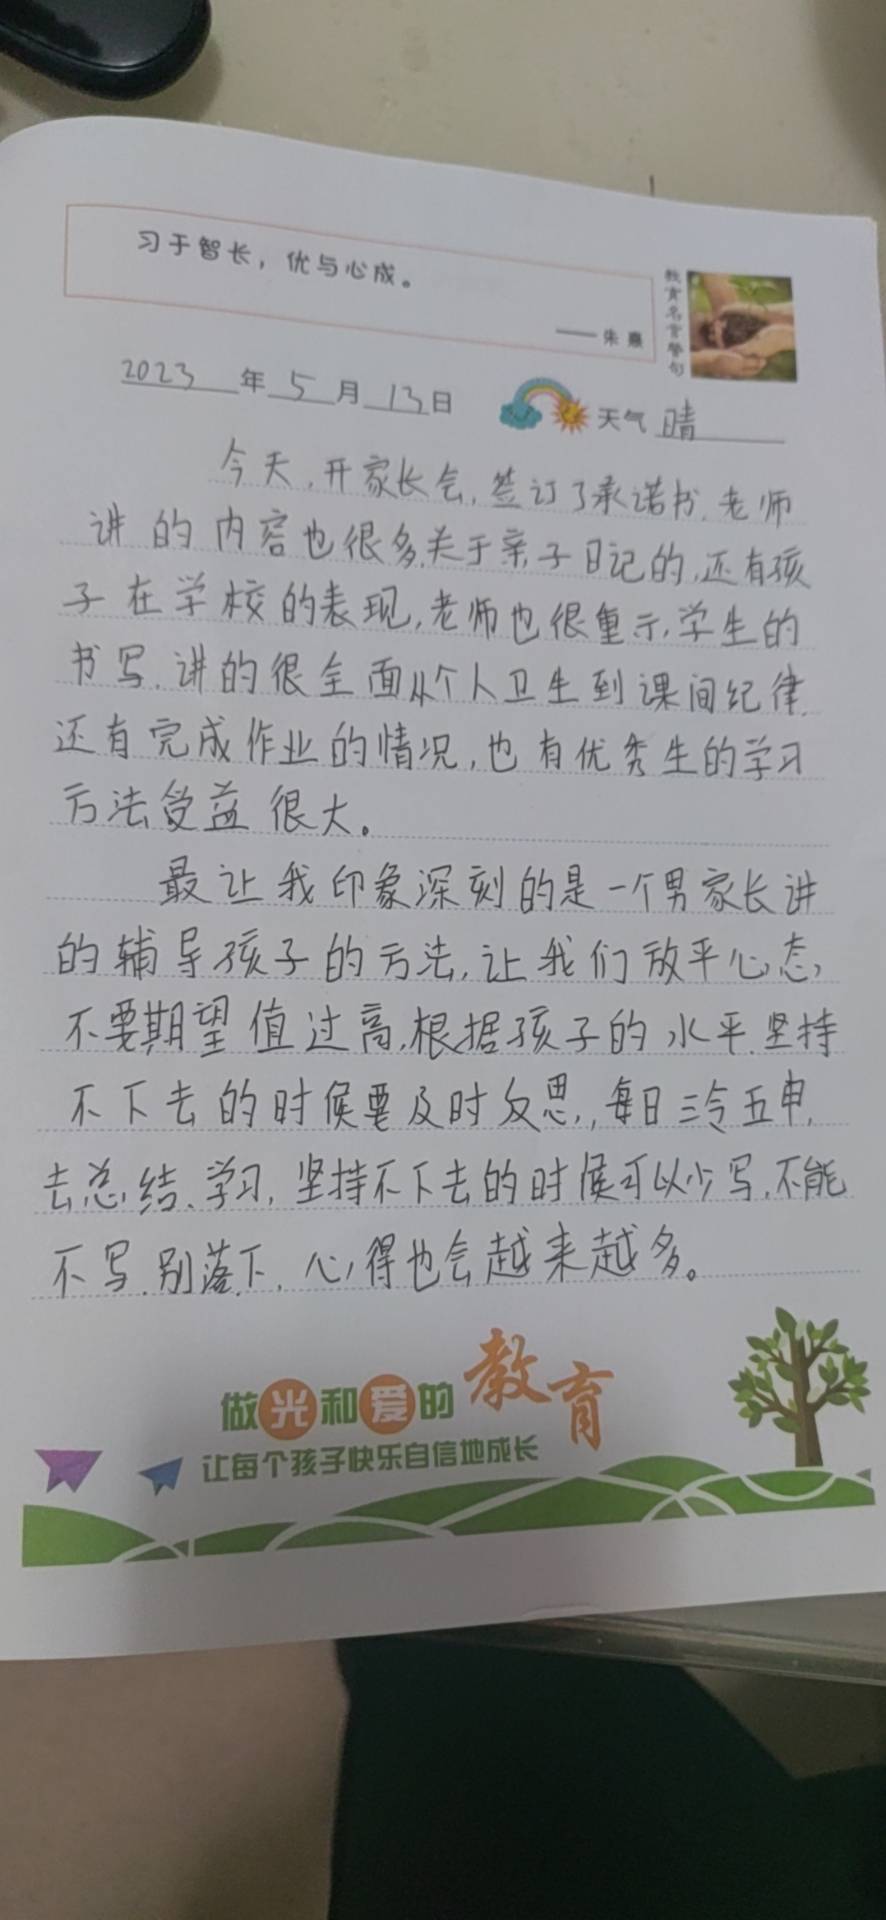 习于智长，优与心成。
——朱熹
教育名言警句
2023年5月13日
天气 晴
今天,开家长会,签订了承诺书,老师
讲的内容也很多,关于亲子日记的,还有孩
子在学校的表现,老师也很重示,学生的
书写,讲的很全面从个人卫生到课间纪律,
还有完成作业的情况,也有优秀生的学习
方法受益很大。
最让我印象深刻的是一个男家长讲
的辅导孩子的方法,让我们放平心态,
不要期望值过高,根据孩子的水平,坚持
不下去的时候要及时反思,每日三令五申,
去总结、学习,坚持不下去的时候可以少写,不能
不写,别落下,心得也会越来越多。
做光和爱的教育
让每个孩子快乐自信地成长